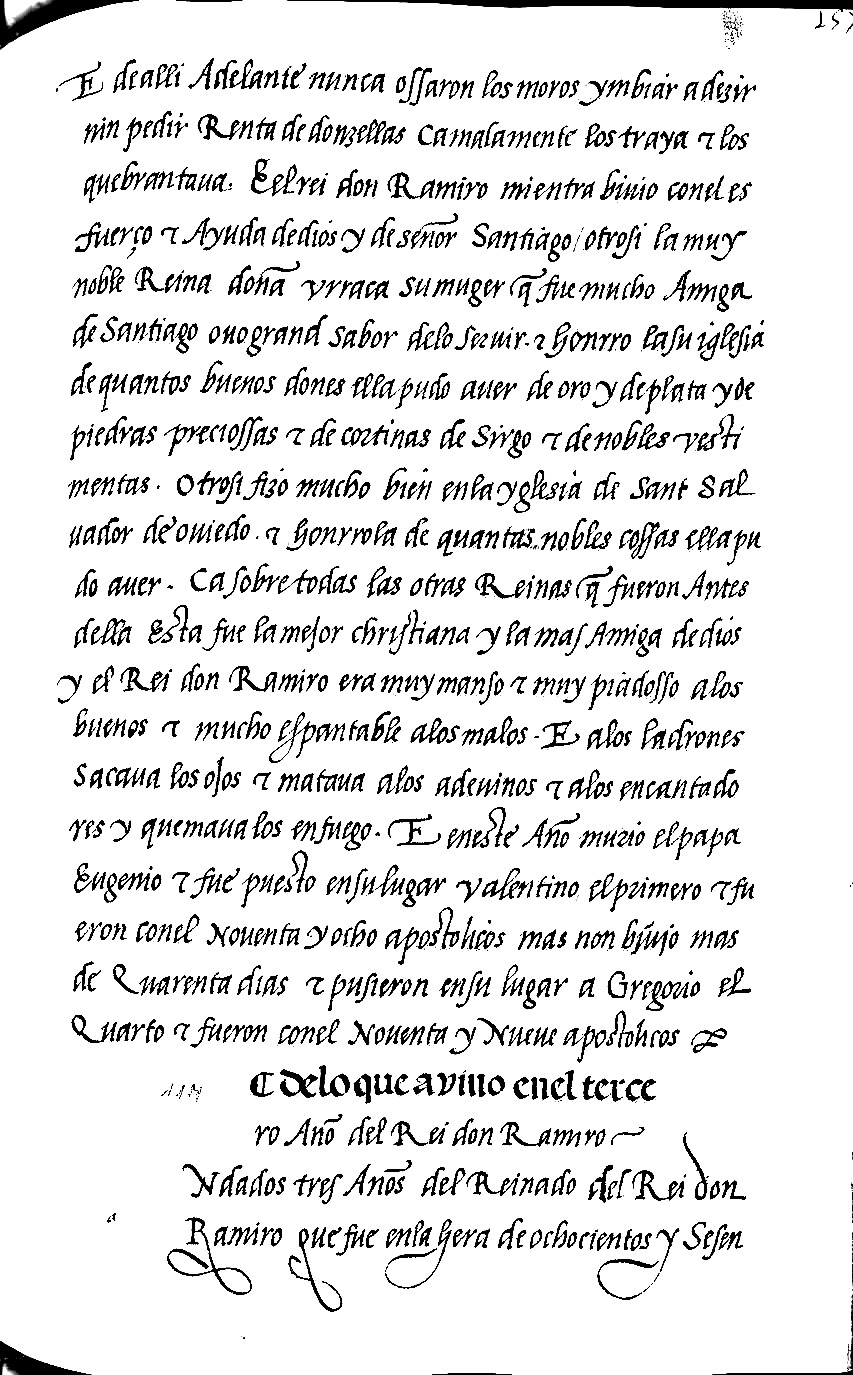 157
E de alli Adelante nunca ossaron los moros ymbiar a dezir
nin pedir Renta de donzellas Ca malamente los traya τ los
quebrantaua. E el rei don Ramiro mientra biuio con el es
fuerço τ Ayuda de dios y de señor Santiago / otrosi la muy
noble Reina doña vrraca su muger q̃ fue mucho Amiga
de Santiago ouo grand sabor de lo seruir. τ honrro la su iglesia
de quantos buenos dones ella pudo auer de oro y de plata y de
piedras preciossas τ de cortinas de Sirgo τ de nobles vesti
mentas. Otrosi fizo mucho bien en la yglesia de Sant Sal
uador de ouiedo. τ honrrola de quantas nobles cossas ella pu
do auer. Ca sobre todas las otras Reinas q̃ fueron Antes
della Esta fue la mejor christiana y la mas Amiga de dios
y el Rei don Ramiro era muy manso τ muy piadosso a los
buenos τ mucho espantable a los malos. E a los ladrones
sacaua los ojos τ mataua a los adeuinos τ a los encantado
res y quemaualos en fuego. E en este Año murio el papa
Eugenio τ fue puesto en su lugar valentino el primero τ fu
eron con el Nouenta y ocho apostolicos mas non biujo mas
de Quarenta dias τ pusieron en su lugar a Gregorio el
Quarto τ fueron con el Nouenta y Nueue apostolicos
¶ de lo que avino en el terce
ro Año del Rei don Ramiro
Ndados tres Años del Reinado del Rei don
a
Ramiro que fue en la hera de ochocientos y Sesen